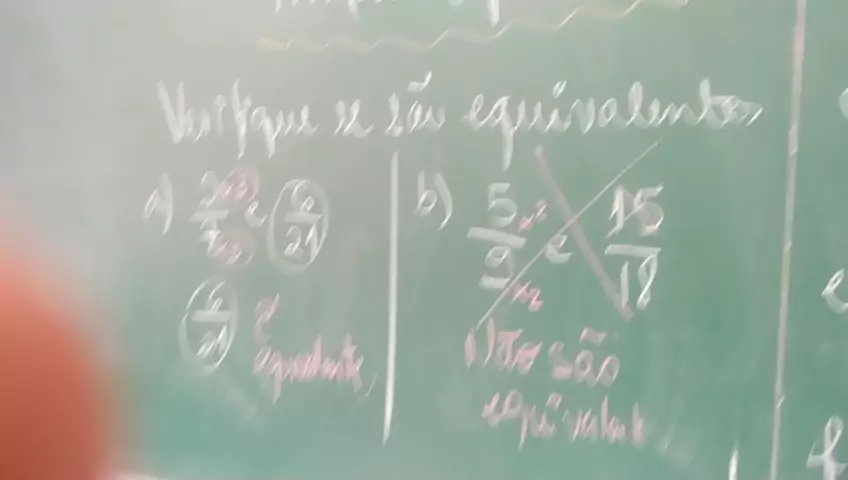 Verifique se são equivalentes
a) 2×3/7×3 e 6/21
6/21 é
equivalente,
b) 5×2/9×2 e 15/18
Não são
equivalente